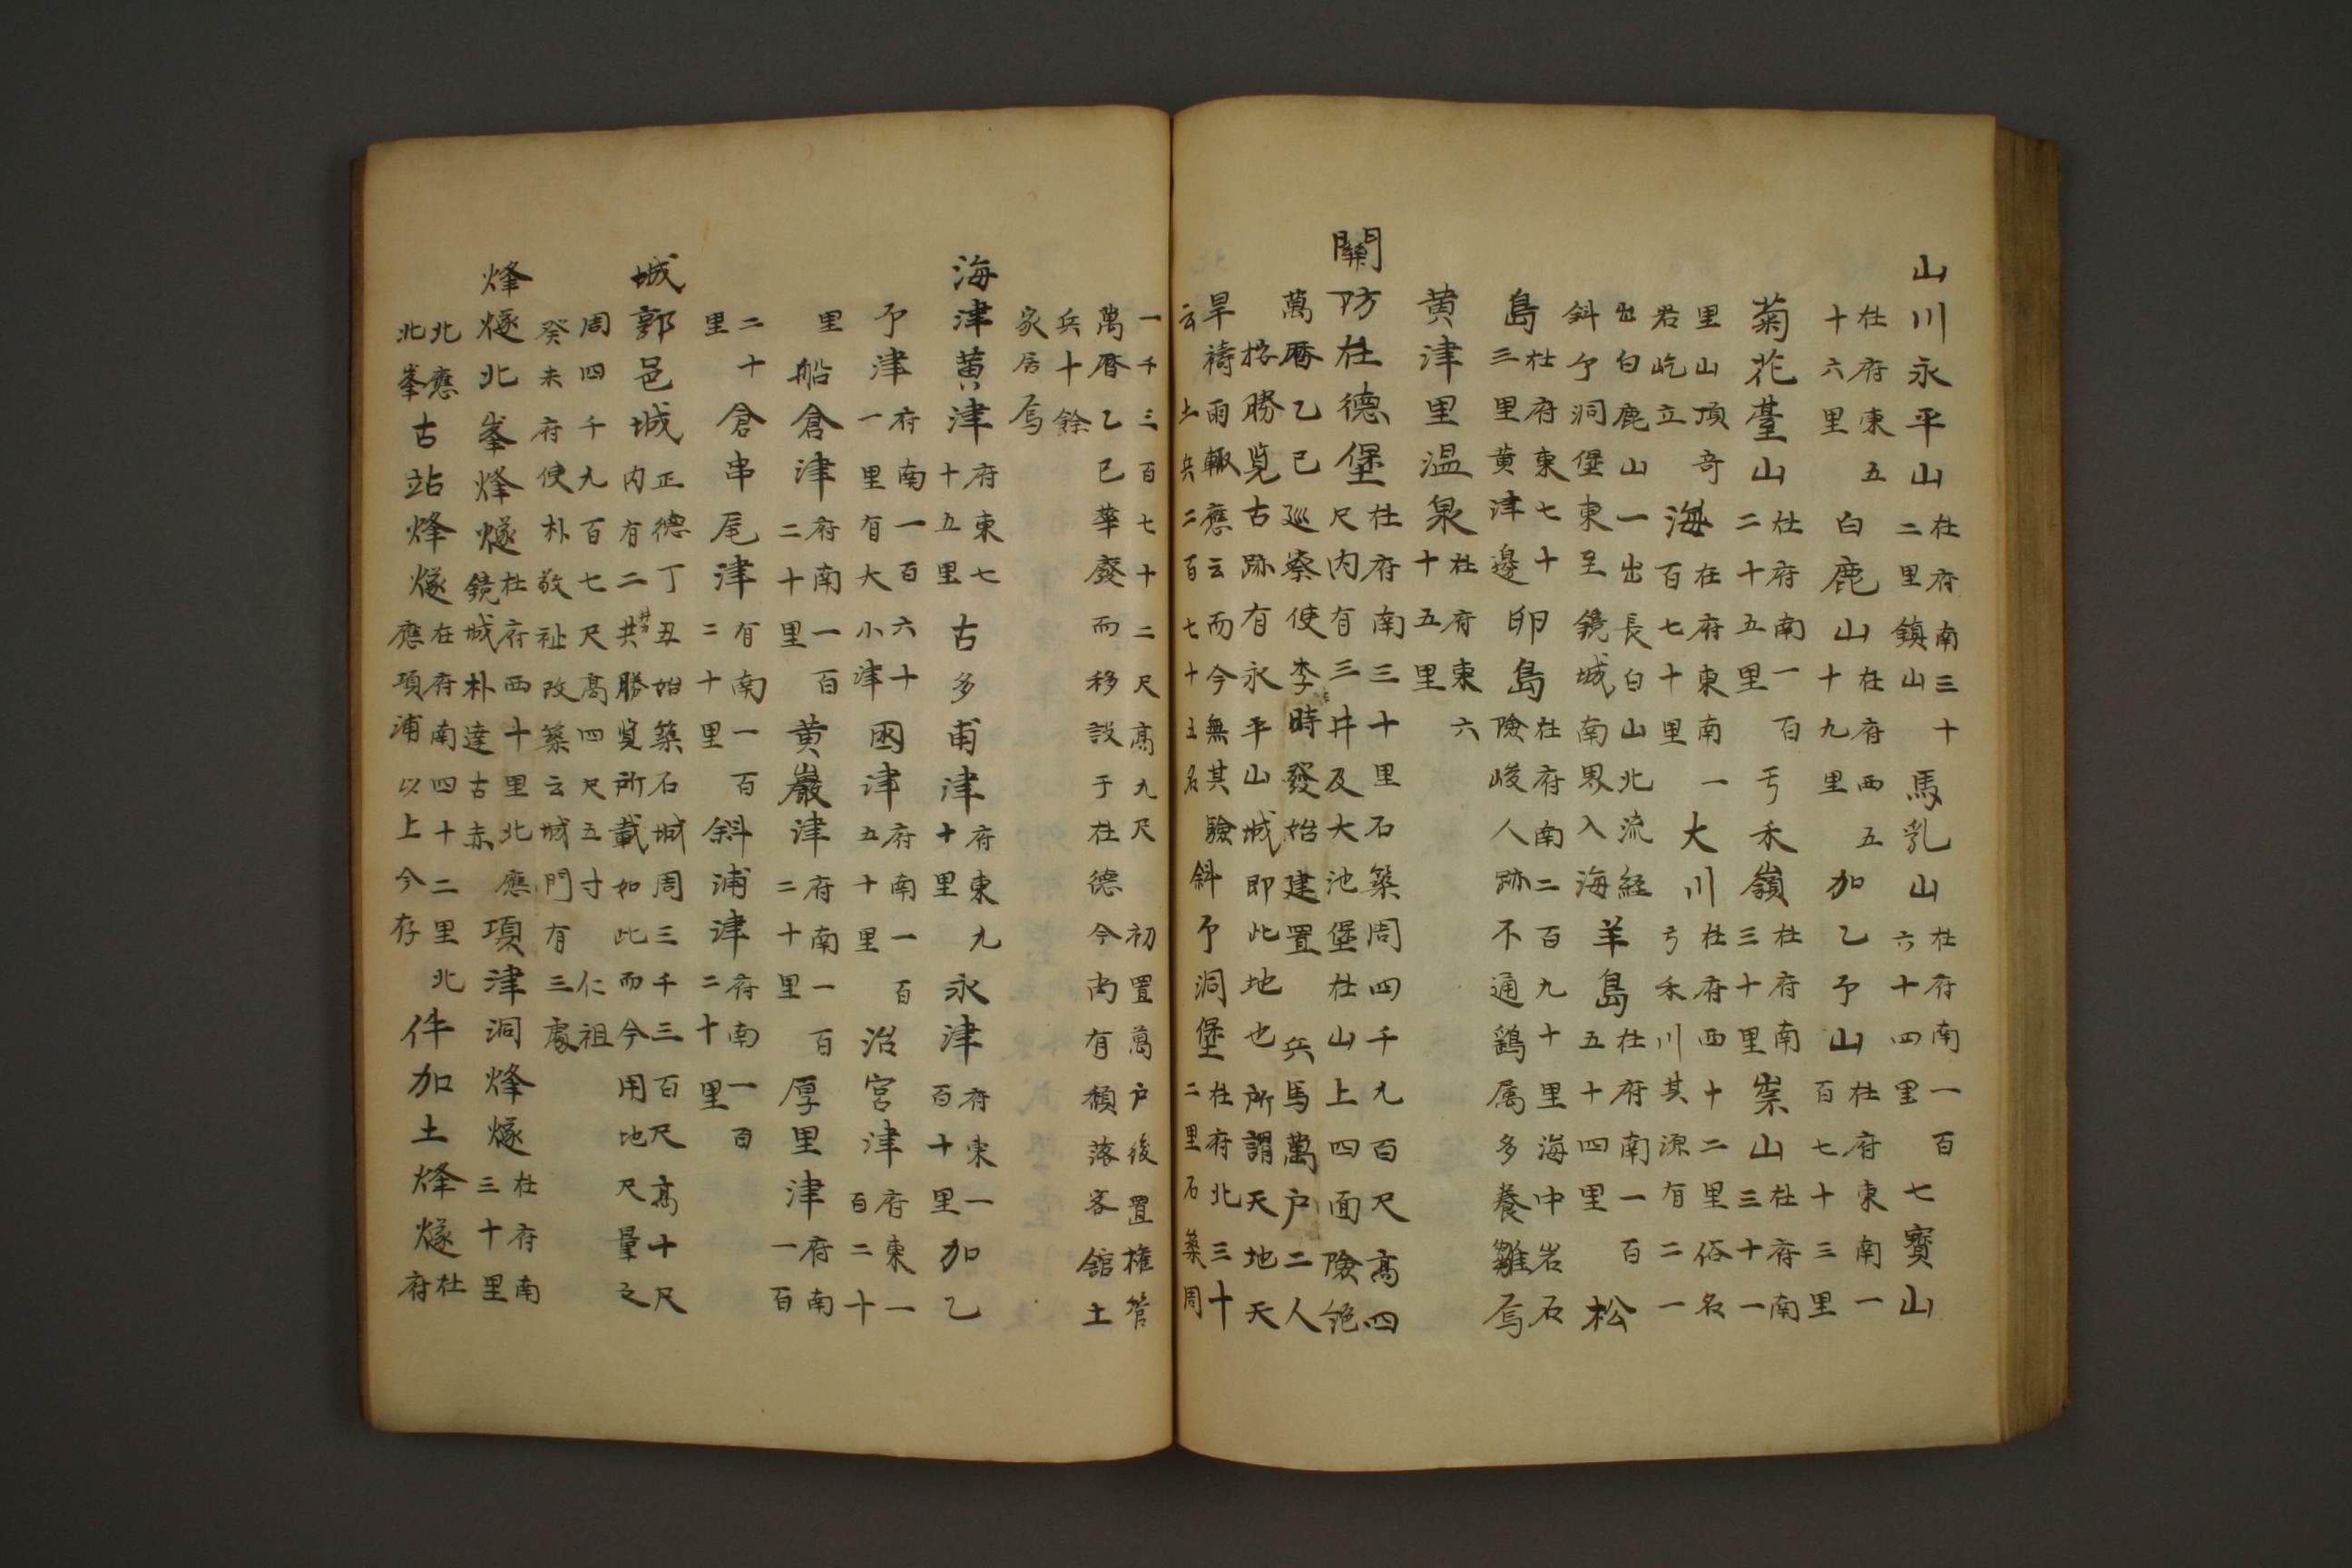 山川永平山在府南三十二里鎭山馬乳山在府南一百六十四里七寶山
在府東五十六里白鹿山在府西五十九里加乙亇山在府東南一百七十三里
菊花臺山在府南一百二十五里亐禾嶺在府南三十里崇山在府南三十一
里山頂竒岩屹立海在府東南一百七十里大川在府西十二里俗名亐禾川其源有二一
出白鹿山一出長白山北流経斜亇洞堡東至鏡城南界入海羊島在府南一百五十四里松
島在府東七十三里黄津邊卵島在府南二百九十里海中岩石險峻人跡不通鷀属多養雛焉
黄津里温泉在府東六十五里
關防在德堡在府南三十里石築周四千九百尺高四尺内有三井及大池堡在山上四面險絶
萬曆乙巳巡察使李時發始建置兵馬萬户二人按勝覧古跡有永平山城即此地也所謂天地天
旱禱雨輙應云而今無其驗云土兵二百七十五名斜亇洞堡在府北三十二里石築周
一千三百七十二尺高九尺初置萬户後置権管萬曆乙巳革廢而移設于在德今内有頹落客舘土
兵十餘家居焉
海津黄津府東七十五里古多甫津府東九十里永津府東一百十里加乙
亇津府南一百六十一里有大小津囦津府南一百五十里治宮津府東一百二十
里船倉津府南一百二十里黄巖津府南一百二十里厚里津府南一百
二十里倉串尾津有南一百二十里斜浦津府南一百二十里
城郭邑城正德丁丑始築石城周三千三百尺高十尺内有二井共勝覧所載如此而今用地尺量之
周四千九百七尺高四尺五寸仁祖癸未府使朴敬祉改築云城門有三處
烽燧北峯烽燧在府西十里北應鏡城朴達古赤項津洞烽燧在府南三十里
北應北峯古站烽燧在府南四十二里北應項浦以上今存件加土烽燧在府